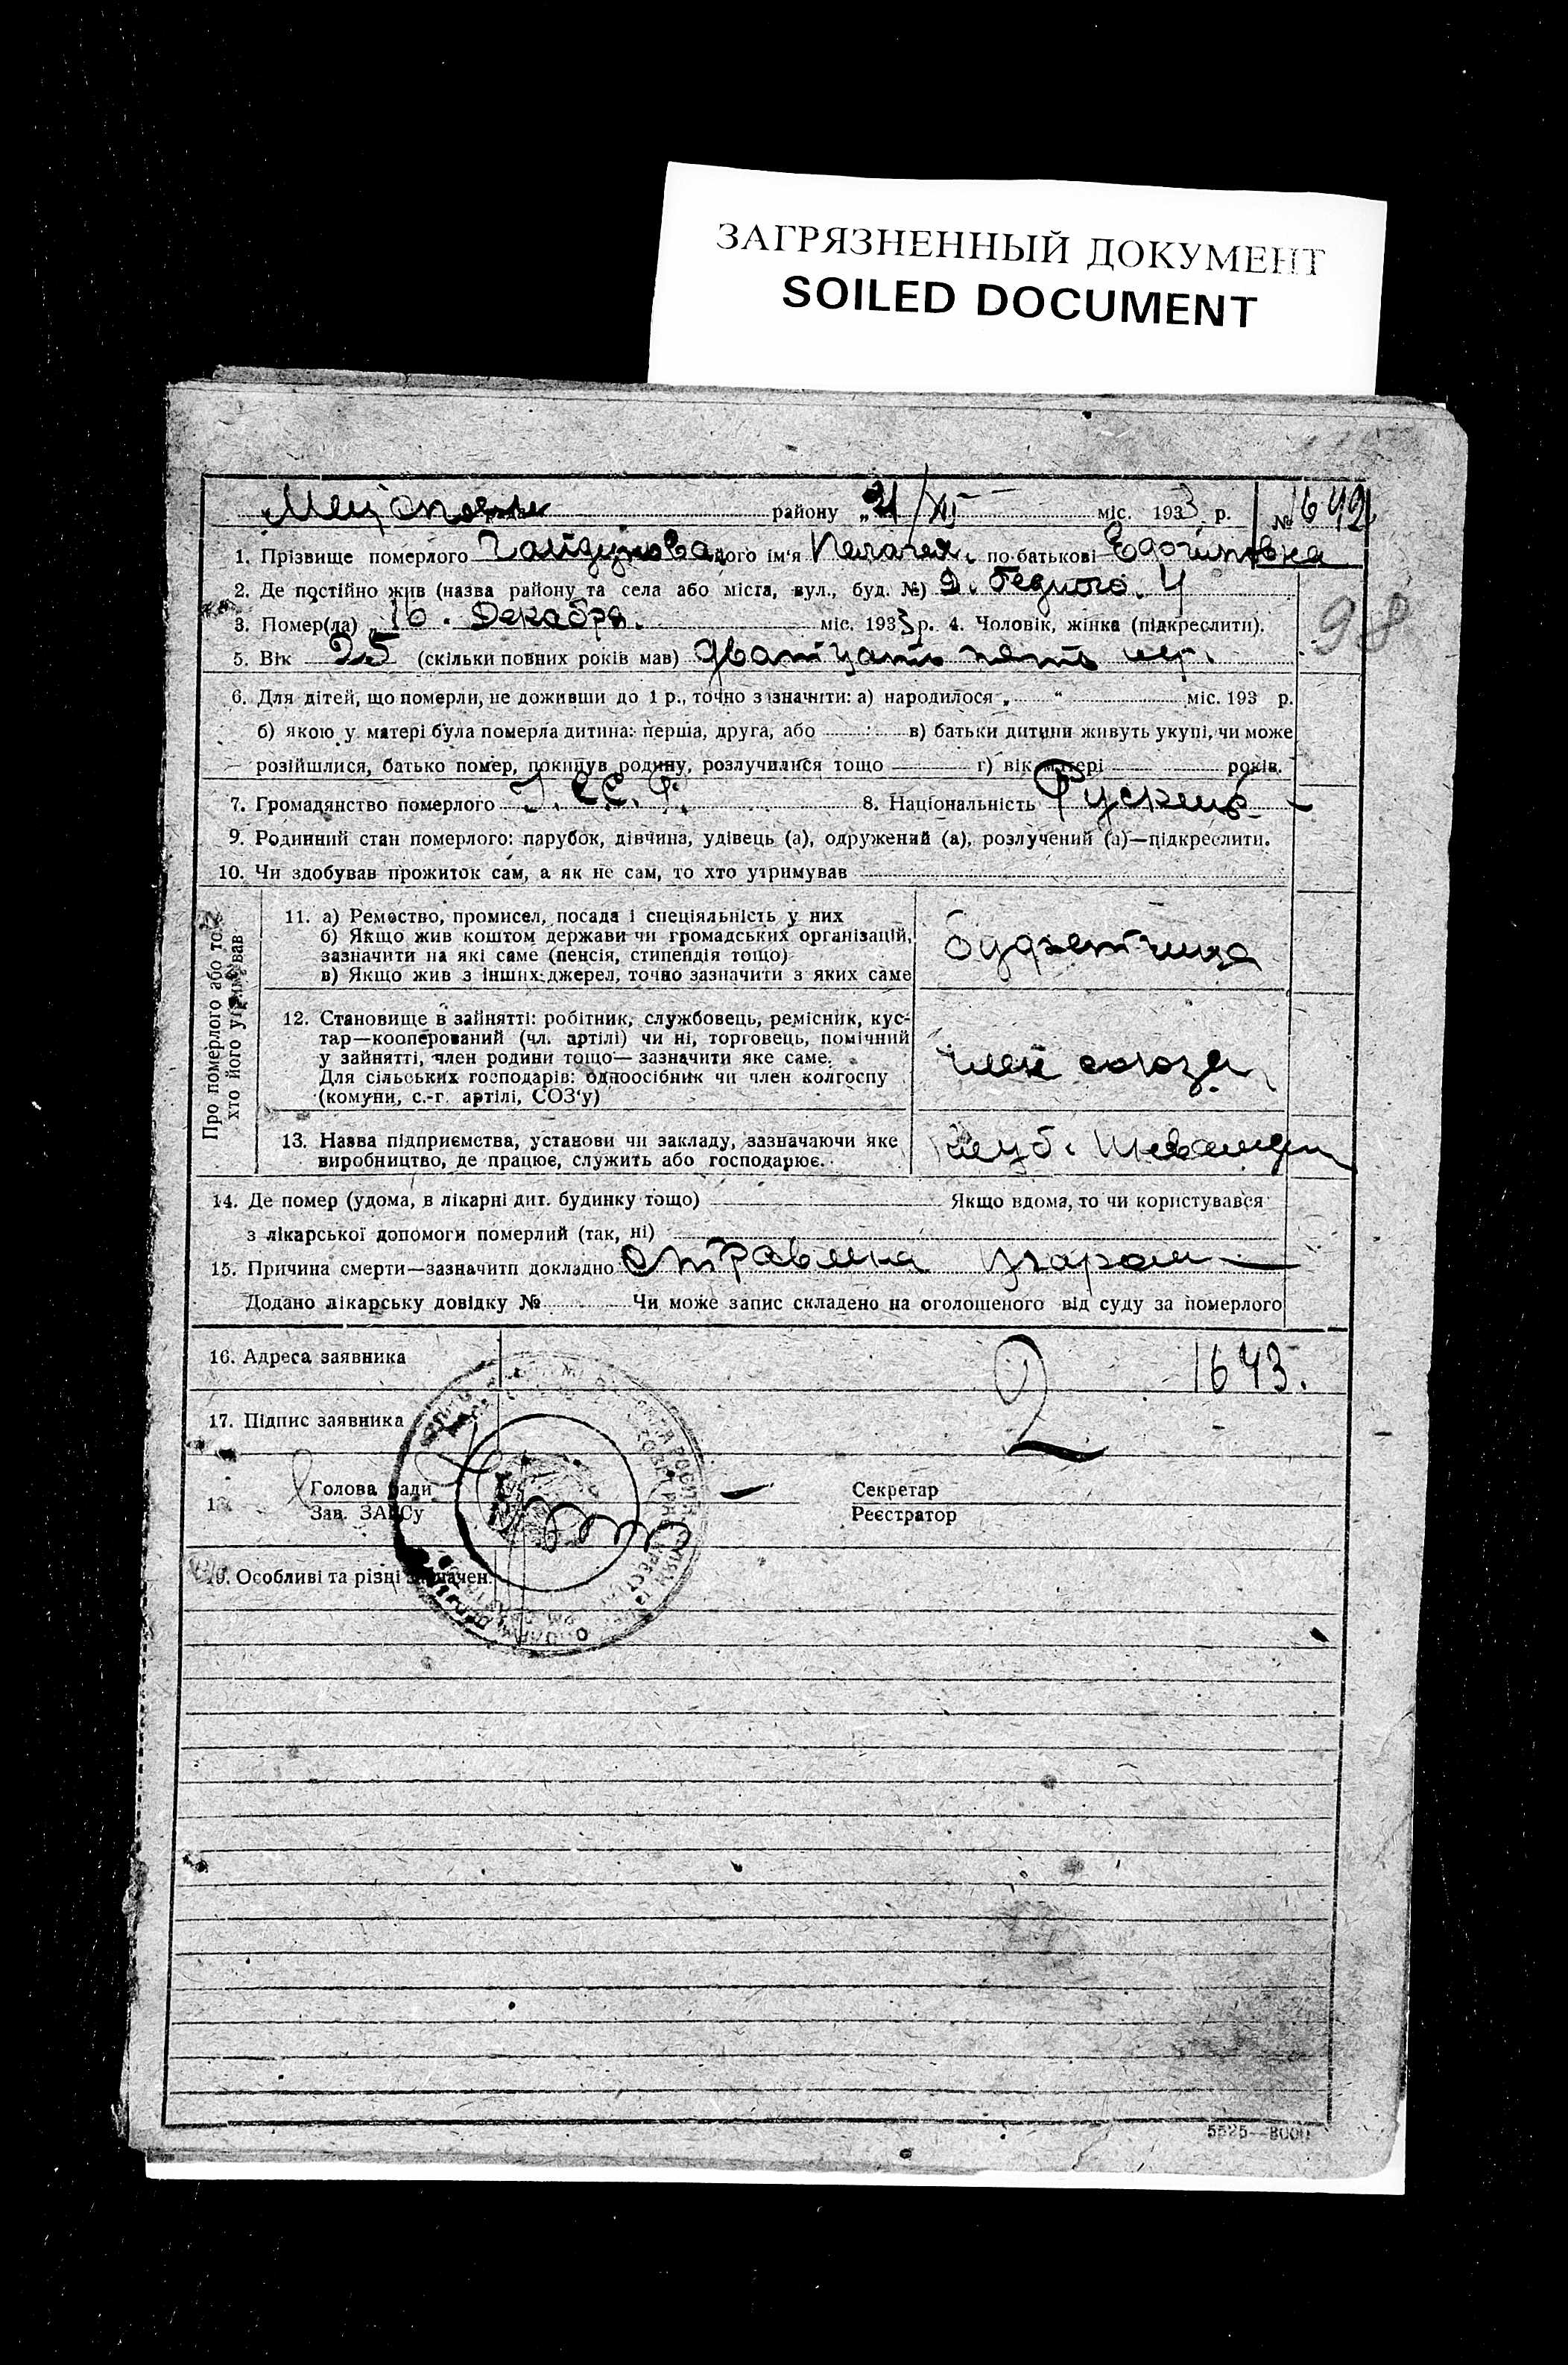 ЗАГРЯЗНЕННЫЙ ДОКУМЕНТ
SOILED DOCUMENT
району „21/XI міс. 1933 р. № 1642
1. Прізвище померлого його ім'я Пелагея по батькові
2. Де постійно жив (назва району та села або міста, вул., буд. №) Д. Бедного. 4
3. Помер(ла) „16. Декабря. міс. 1933 р. 4. Чоловік, жінка (підкреслити).
5. Вік 25 (скільки повних років мав) дватцать пять лет.
6. Для дітей, що померли, не доживши до 1 р., точно зазначити: а) народилося „ “ міс. 193 р.
б) якою у матері була померла дитина: перша, друга, або в) батьки дитини живуть укупі, чи може
розійшлися, батько помер, покинув родину, розлучилися тощо г) вік матері років.
7. Громадянство померлого 8. Національність Руская
9. Родинний стан померлого: парубок, дівчина, удівець (а), одружений (а), розлучений (а)—підкреслити.
10. Чи здобував прожиток сам, а як не сам, то хто утримував
Про померлого або того
хто його утримував
11. а) Ремество, промисел, посада і спеціяльність у них
б) Якщо жив коштом держави чи громадських організацій,
зазначити на які саме (пенсія, стипендія тощо)
в) Якщо жив з інших джерел, точно зазначити з яких саме
буфетчица
12. Становище в зайнятті: робітник, службовець, ремісник, кус-
тар—кооперований (чл. артілі) чи ні, торговець, помічний
у зайнятті, член родини тощо— зазначити яке саме.
Для сільських господарів: одноосібник чи член колгоспу
(комуни, с.-г. артілі, СОЗ'у)
член союза
13. Назва підприємства, установи чи закладу, зазначаючи яке
виробництво, де працює, служить або господарює.
клуб.
14. Де помер (удома, в лікарні дит. будинку тощо) Якщо вдома, то чи користувався
з лікарської допомоги померлий (так, ні)
15. Причина смерти—зазначити докладно отравлена угаром
Додано лікарську довідку № Чи може запис складено на оголошеного від суду за померлого
16. Адреса заявника 2 1643.
17. Підпис заявника
Голова ради Секретар
Зав. ЗАГСу Реєстратор
19. Особливі та різні зазначен.
98
5525—8000